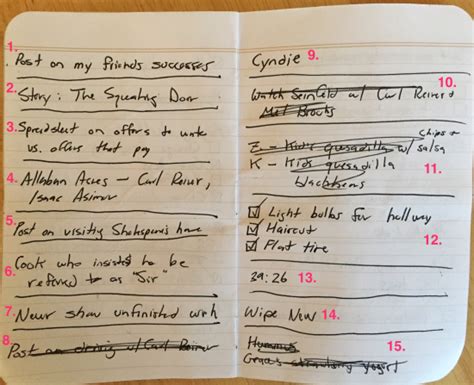 1. Post on my friends successes
2. Story: The Squeaking Door
3. Spreadsheet on offers to write
vs. offers that pay
4. Allaban Acres - Carl Reiner,
Isaac Asimov
5. Post on visiting Shakespeare's home
6. Cook who insisted to be
referred to as "Sir"
7. Never show unfinished work
8. Post on driving w/ Carl Reiner
Cyndie 9.
10.
Watch Seinfeld w/ Carl Reiner &
Mel Brooks
chips +
E - Kid's quesadilla w/ salsa
K - Kids quesadilla 11.
blackbeans
Light bulbs for hallway
Haircut 12.
Flat tire
29:26 13.
Wipe New 14.
Hummus 15.
Grace's strawberry yogurt